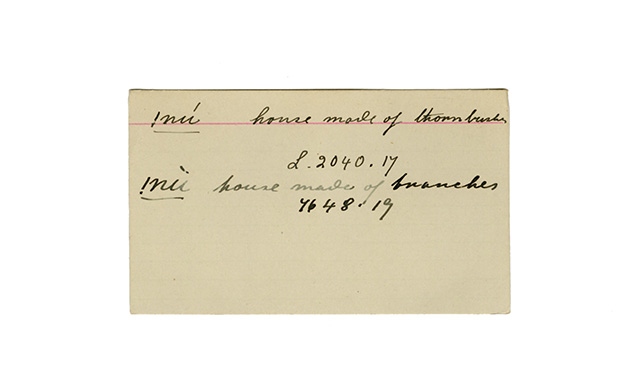 !nú house made of thornbushes
L. 2040. 17
!nù house made of branches
7648. 19